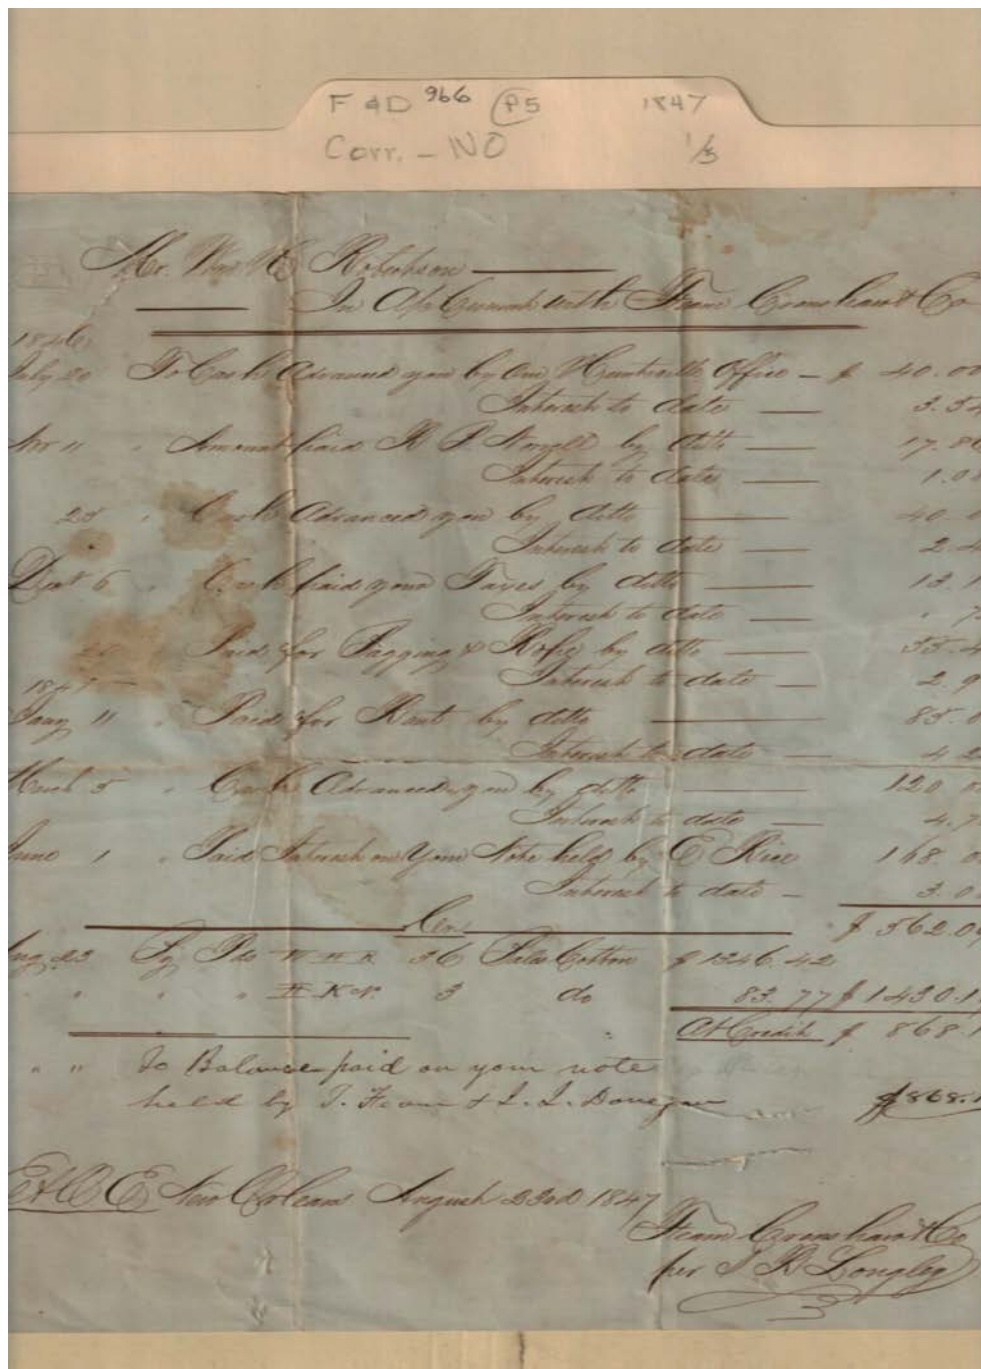 F & D 966 P5 1847
Corr. - NO 1/3
Mr. Wm H Robertson
In A/c Current with Fearn Crenshaw & Co
1846
July 20 To Cash Advanced you by Our Huntsville Office - $ 40.00
Interest to date 3.54
Nov 11 " Amount paid by ditto 17.86
Interest to date 1.0
25 " Cash Advanced you by ditto 40.0
Interest to date 2.4
Dect 6 " Cash paid your Taxes by ditto 13.1
Interest to date " 7
Paid for Bagging & Rope by ditto 55.4
Interest to date 2.9
1847
Jany 11 " Paid for Rent by ditto 85.0
Interest to date 4.2
March 5 " Cash Advanced you by ditto 120.0
Interest to date 4.7
June 1 " Paid Interest on Your Note held by E Rice 168.0
Interest to date - 3.0
$ 562.0
Cr.
Aug 23 By Pds 36 Bales Cotton $ 1346.42
" " " " 3 do 83.77 $ 1430.1
At Credit $ 868.1
" " To Balance paid on your note
held by T. Fearn & J. J. Donegan $868.1
E & O E New Orleans August 23rd 1847
Fearn Crenshaw & Co
per J B Longley